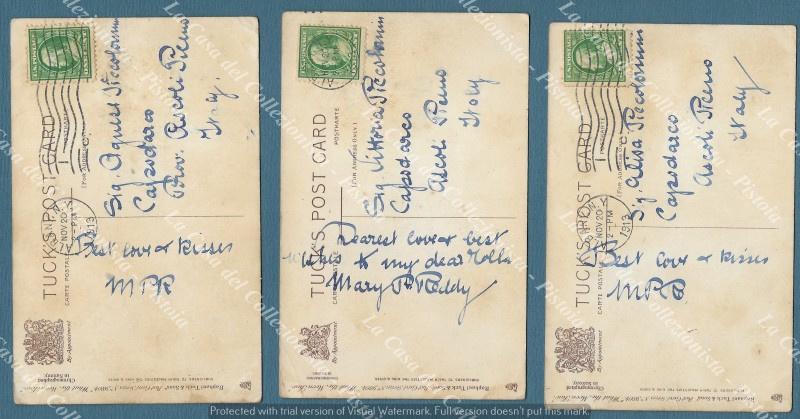 TUCK'S POST CARD
CARTE POSTALE
POSTKARTE
(FOR ADDRESS ONLY.)
NOV 20
-PM
1913
Sig. Agnese Piccolomini
Capodarco
Prov. Ascoli Piceno
Italy.
Best love & kisses
MPR
By Appointment
Chromographed in Saxony
TUCK'S POST CARD
CARTE POSTALE
POSTKARTE
(FOR ADDRESS ONLY.)
Sig. Vittoria Piccolomini
Capodarco
Ascoli Piceno
Italy
Dearest love & best
to my dear
Mary P. Reddy
By Appointment
TUCK'S POST CARD
CARTE POSTALE
(FOR ADDRESS
NOV 20
2-PM
1913
Sig. Piccolomini
Capodarco
Ascoli Piceno
Italy
Best love & kisses
By Appointment
Chromographed in Saxony
La Casa del Collezionista - Pistoia
Protected with trial version of Visual Watermark. Full version doesn't put this mark.